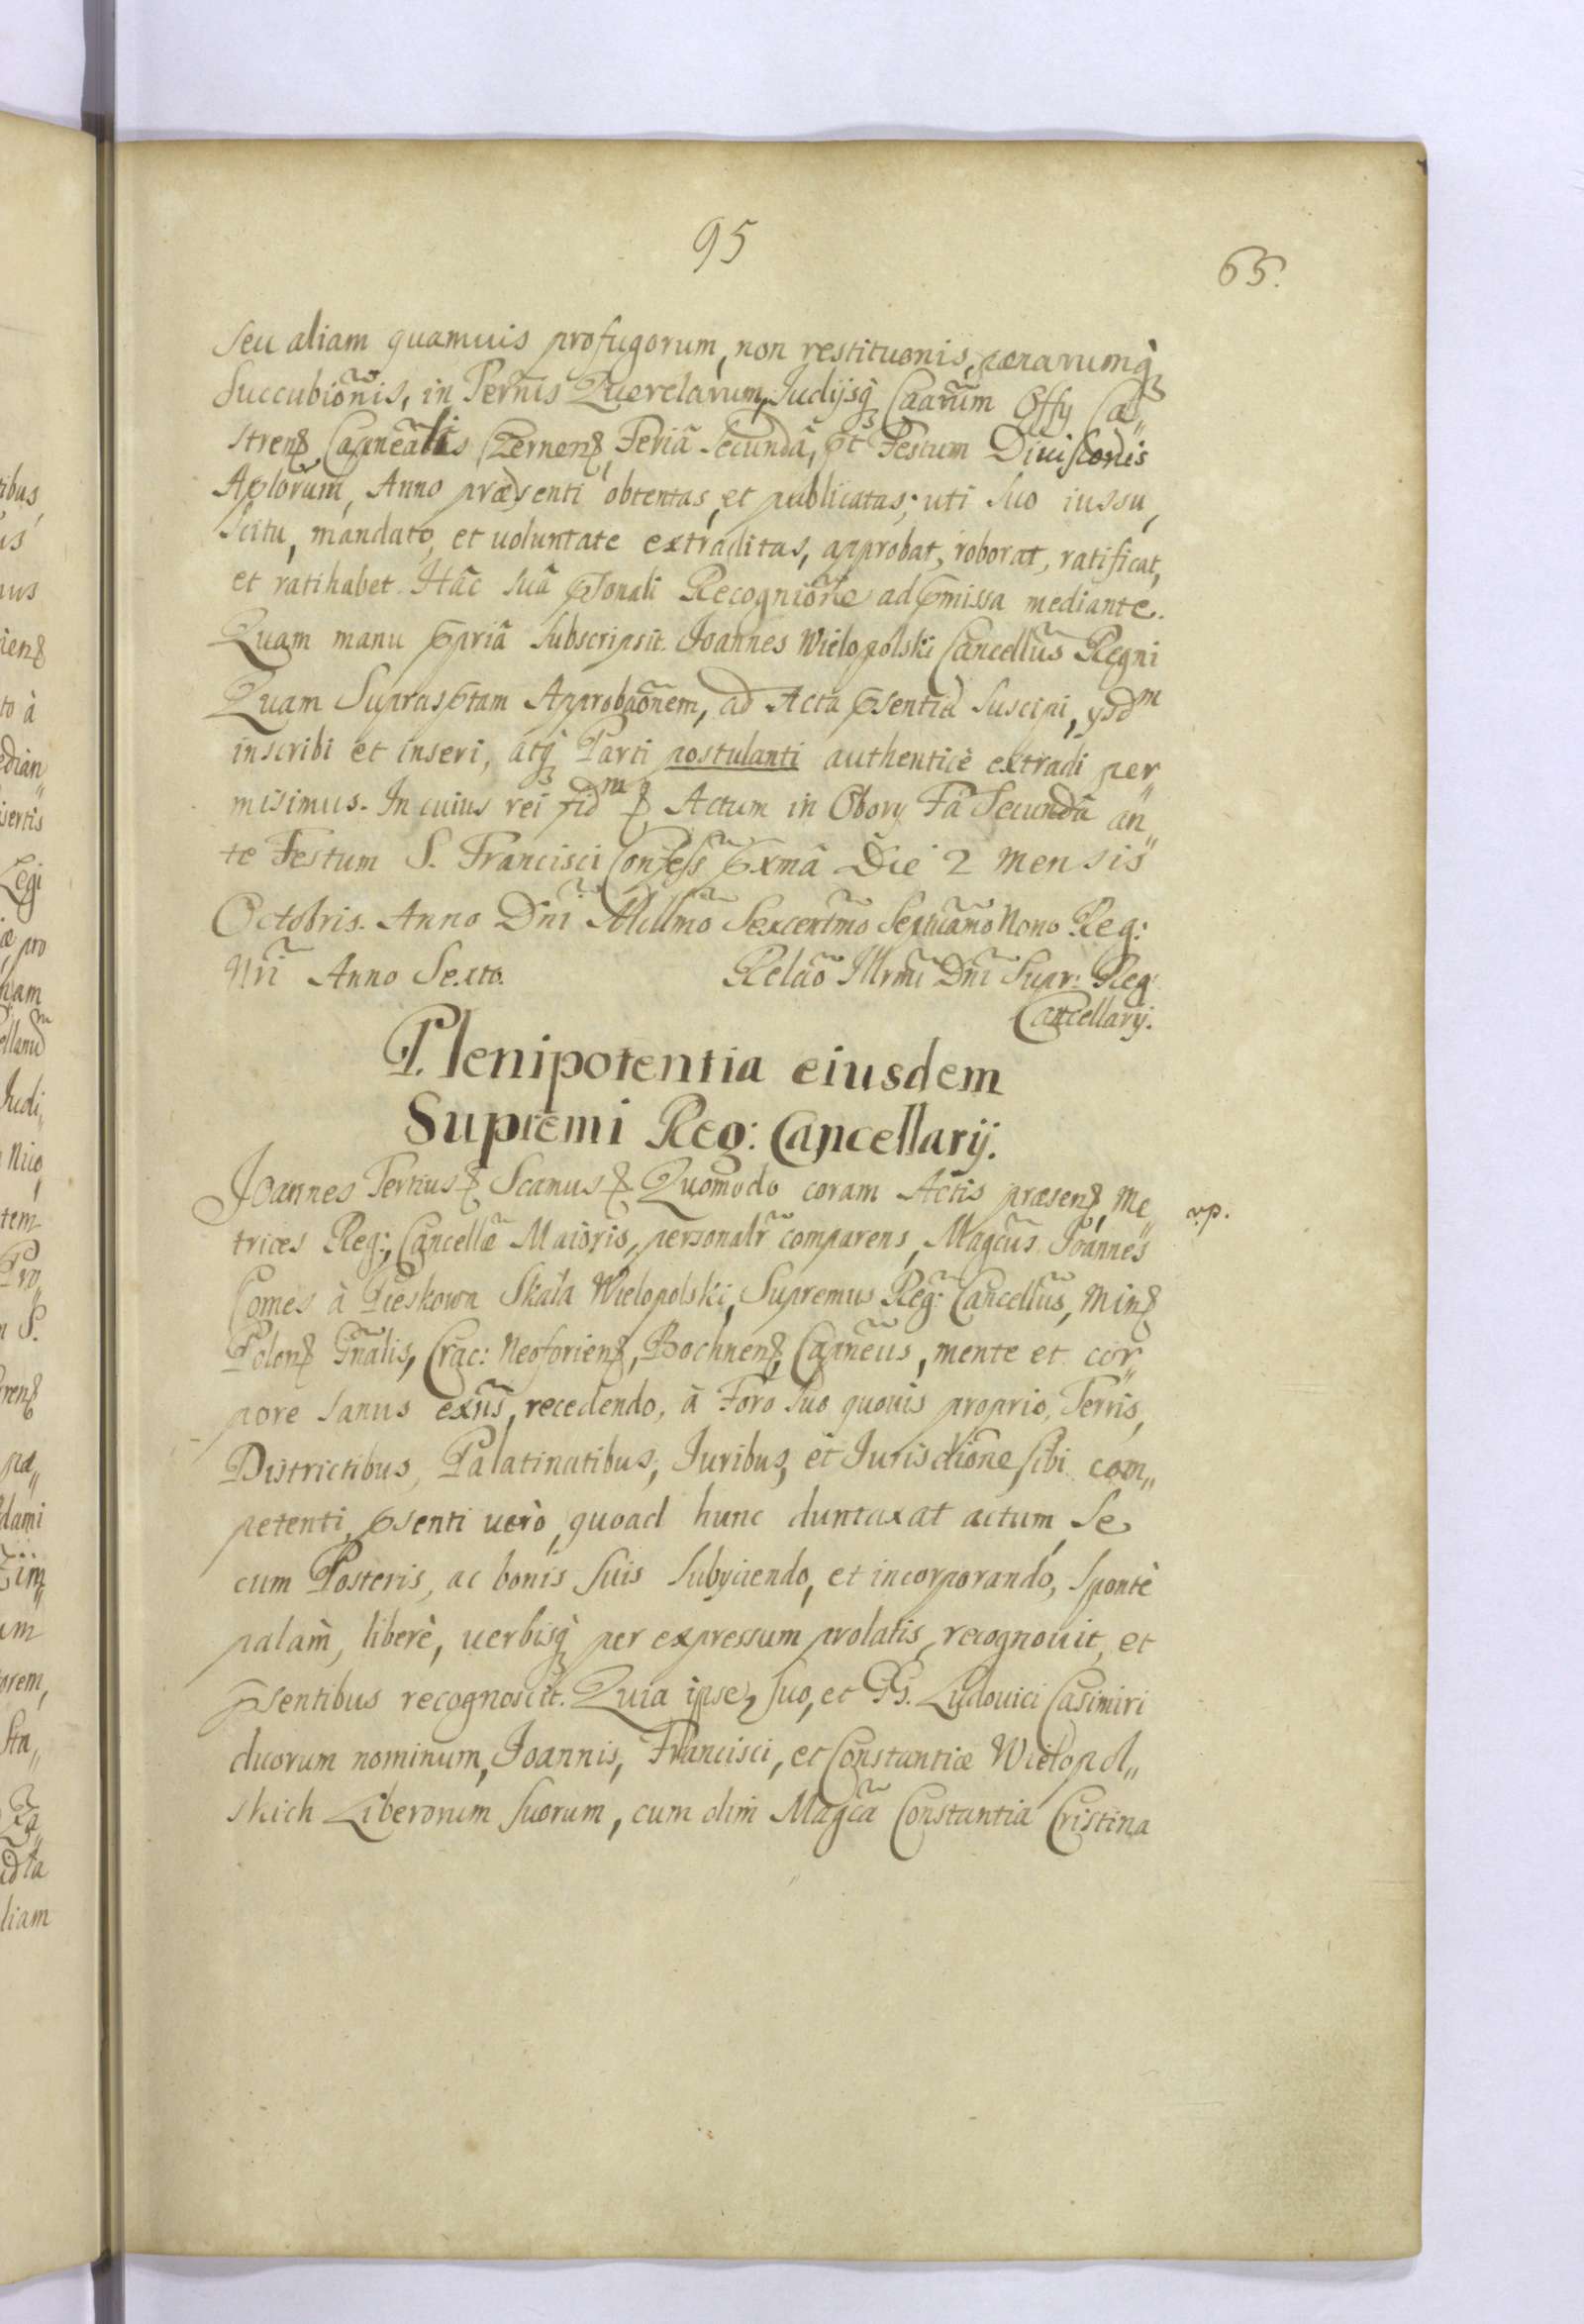 95
65.
seu aliam quamuis profugorum, non restituonis, pœnarumq̀
Succubionis, in Termis Querelarum, Iudijsq̀ Caarum Offy Ca„
strens Capnealis Czernens, Feriâ Secundâ, pt Festum Diuisionis
Aplorum, Anno præsenti obtentas, et publicatas; uti suo iussu,
Scitu, mandato, et uoluntate extraditas, approbat, roborat, ratificat,
et ratihabet. Hâc suâ psonali Recognione ad pmissa mediante.
Quam manu ppriâ subscripsit. Joannes Wielopolski Cancellus Regni
Quam Suprasptam Approbaonem, ad Acta psentia suscipi, ysdm
inscribi et inseri, atq̀ Parti postulanti authenticè extradi per„
misimus. In cuius rei fidm Actum in Obory Fâ Secundâ an„
te Festum S. Francisci Confess pxmâ Die 2 mensis
Octobris. Anno Dni Millmo Sexcentmo Septuamo Nono Reg:
Nri Anno Sexto. Relao Illrmi Dni Supr: Reg:
Cancellarij.
Plenipotentia eiusdem
Supremi Reg: Cancellarij.
Joannes Tertius Scanus Quomodo coram Actis præsens, Me„
trices Reg:, Cancellæ Maioris, personalr comparens, Magcus Joannes
Comes à Pieskowa Skała Wielopolski, Supremus Reg: Cancellus, Mins
Polons Gnalis, Crac: Neoforiens, Bochnens, Capneus, mente et cor„
pore sanus exns, recedendo, à Foro suo quouis proprio, Terris,
Districtibus, Palatinatibus, Iuribus, et Iurisdione sibi com„
petenti, psenti uerò, quoad hunc duntaxat actum, Se
cum Posteris, ac bonis suis subyciendo, et incorporando, sponte
palàm, liberè, uerbisq̀ per expressum prolatis, recognouit, et
psentibus recognoscit. Quia ipse, suo, et GG. Ludouici Casimiri
duorum nominum, Joannis, Francisci, et Constantiæ Wielopol„
skich Liberorum suorum, cum olim Magca Constantia Cristina